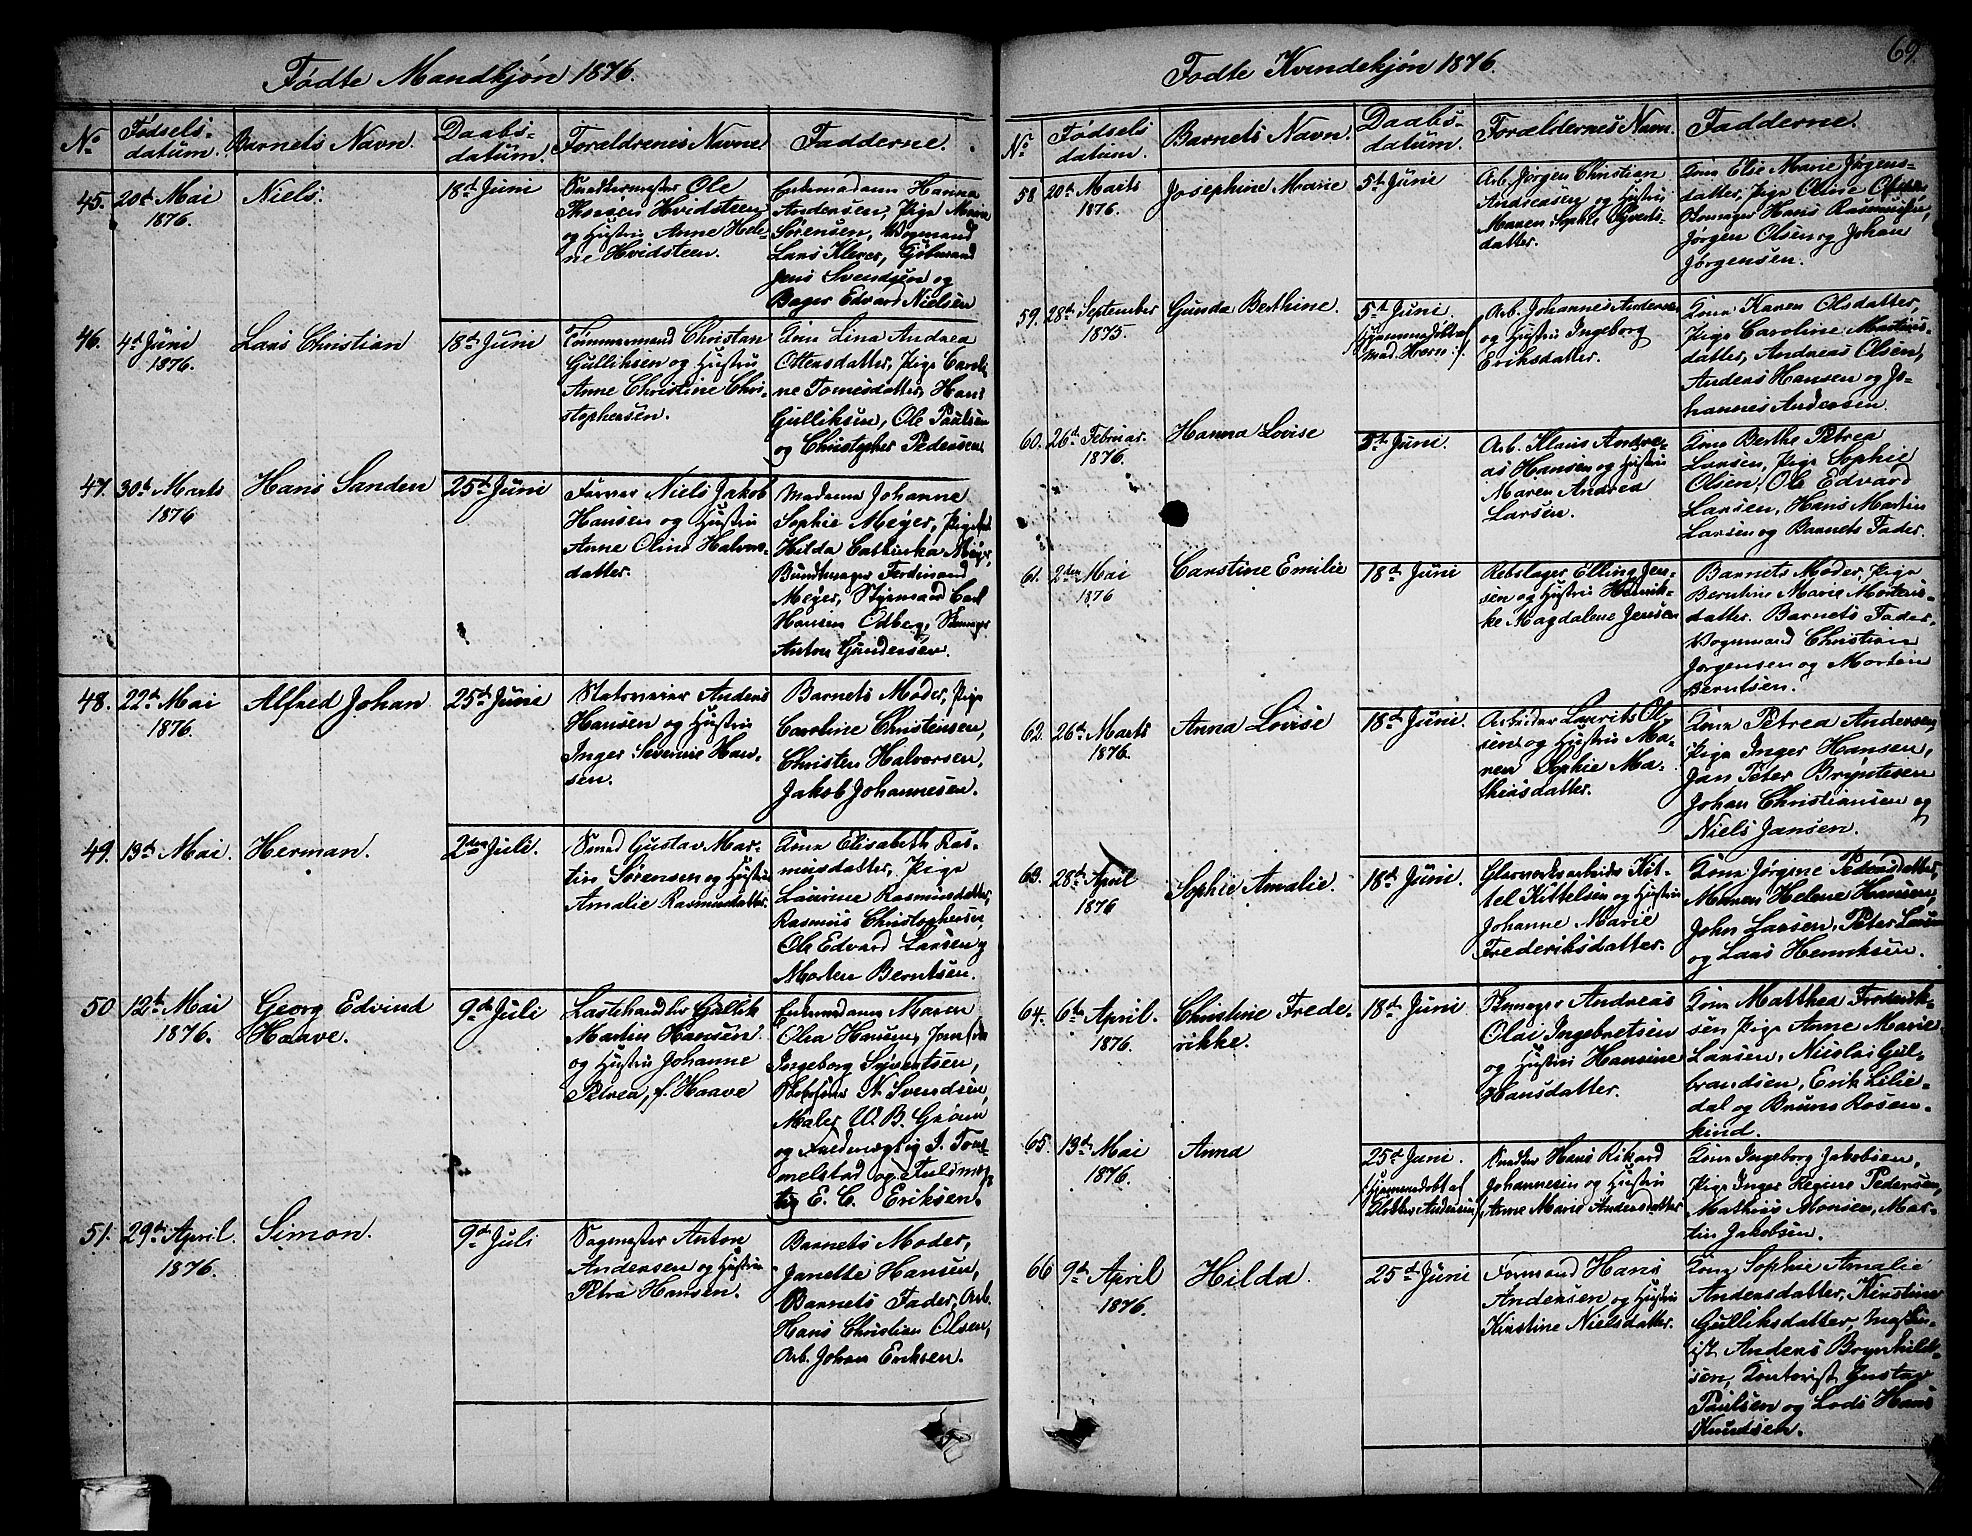 Fødte Mandkjøn 1876.
No
Fødsels-
datum.
Barnets Navn.
Daabs-
datum.
Forældrenes Navne
Fadderne.
45.
20de Mai
1876.
Niels.
18de Juni
Ole
Hvidsteen
og Hustru Anne Hele-
ne Hvidsteen.
Enkemadam Hanna
Andersen, Pige Maria
Sørensen, Vognmand
Lars Klever,
Jens Svendsen og
Bager Edvard Nielsen
46.
4de Juni
1876.
Lars Christian
18de Juni
Tømmermand Christan
Gulliksen og Hustru
Anne Christine Chri-
stophersen.
Kone Lina Andrea
Ottersdatter, Pige Caroli-
ne Tomesdatter, Hans
Gulliksen, Ole Paulsen
og Christopher Pedersen
47.
30de Marts
1876
Hans Sanden
25de Juni
Farver Niels Jakob
Hansen og Hustru
Anne Oline Halvors-
datter.
Madame Johanne
Sophie Meyer, Pige
Hilda Cathinka Meyer,
Bundtmager Ferdinand
Meyer, Styrmand Carl
Hansen Edberg,
Anton Gundersen.
48.
22de Mai
1876.
Alfred Johan
25de Juni
Anders
Hansen og Hustru
Inger Severine Han-
sen.
Barnets Moder, Pige
Caroline Christensen,
Christen Halvorsen,
Jakob Johannesen.
49.
13de Mai.
Herman.
2den Juli.
Smed Gustav Mar-
tin Sørensen og Hustru
Amalie Rasmusdatter.
Kone Elisabeth Ras-
musdatter, Pige
Laurine Rasmusdatter,
Rasmus Christophersen,
Ole Edvard Larsen og
Morten Berntsen.
50
12de Mai
1876.
Georg Edvind
Haave.
9de Juli
Gullik
Martin Hansen
og Hustru Johanne
Petrea, f. Haave
Enkemadam Maren
Olea Hansen, Jomfru
Ingeborg Syvertsen,
N. Svendsen,
Maler W. B. Grønn
og Fuldmægtig I. Tom-
melstad og Fuldmæg-
tig E. C. Eriksen.
51.
29de April.
1876.
Simon.
9de Juli
Sagmester Anton
Andersen og Hustru
Petra Hansen.
Barnets Moder,
Janette Hansen,
Barnets Fader, Arb.
Hans Christian Olsen,
Arb. Johan Eriksen.
Fødte Kvindekjøn 1876.
69.
No
Fødsels
datum.
Barnets Navn.
Daabs-
datum.
Forældernes Navn.
Fadderne.
58
20de Marts
1876.
Josephine Marie
5te Juni
Arb. Jørgen Christian
Andreasen og Hustru
Maren Sophie Syverts-
datter.
Kone Elise Marie Jørgens-
datter, Pige Oline
Hans Rasmussen,
Jørgen Olsen og Johan
Jørgensen.
59.
28de September
1875.
Gunda Berthine.
5te Juni
Hjemmedøbt af
Mad. Horn.
Arb. Johannes Andersen
og Hustru Ingeborg
Eriksdatter.
Kone Karen Olsdatter,
Pige Caroline Martins-
datter, Andreas Olsen,
Anders Hansen og Jo-
hannes Andersen.
60.
26de Februar.
1876.
Hanna Lovise
5te Juni.
Arb. Klaus Andre-
as Hansen og Hustru
Maren Andrea
Larsen.
Kone Berthe Petrea
Larsen, Pige Sophie
Olsen, Ole Edvard
Larsen, Hans Martin
Larsen og Barnets Fader.
61.
2den Mai
1876
Carstine Emilie
18de Juni
Rebslager Elling Jen-
sen og Hustru Henrik-
ke Magdalene Jensen
Barnets Moder, Pige
Berntine Marie Mortens-
datter. Barnets Fader,
Vognmand Christian
Jørgensen og Morten
Berntsen.
62.
26de Marts
1876.
Anna Lovise
18de Juni.
Arbeider Laurits Ol-
sen og Hustru Ma-
ren Sophie Ma-
thiasdatter.
Kone Petrea Andersen,
Pige Inger Hansen,
Jan Peter Bryntesen
Johan Christiansen og
Niels Jansen.
63.
28de April
1876
Sophie Amalie.
18de Juni.
Glasværksarbeider Kit-
tel Kittelsen og Hustru
Johanne Marie
Frederiksdatter.
Kone Jørgine Pedersdatter,
Maren Helene Hansen,
John Larsen, Peter Larsen
og Lars Henriksen.
64.
6te April.
1876.
Christine Frede-
rikke.
18de Juni
Andreas
Olai Ingebretsen
og Hustru Hansine
Hansdatter.
Kone Matthea Frederik-
sen Pige Anne Marie
Larsen, Nicolai Gul-
brandsen, Erik Lilie-
dal og Bruns Rosen-
kind.
65.
13de Mai
1876.
Anna
25de Juni.
Hjemmedøbt af
Andersen
Hans Rikard
Johannesen og Hustru
Anne Marie Andersdatter
Kone Ingeborg Jakobsen,
Pige Inger Regine Pedersen,
Mathias Monsen, Mar-
tin Jakobsen.
66
9de April
1876.
Hilda.
25de Juni
Formand Hans
Andersen og Hustru
Kirstine Nielsdatter.
Kone Sophie Amalie
Andersdatter, Kirstine
Gulliksdatter, Maskin-
ist Anders Brynhild-
sen, Kontorist Gustav
Paulsen og Lods Hans
Knudsen.